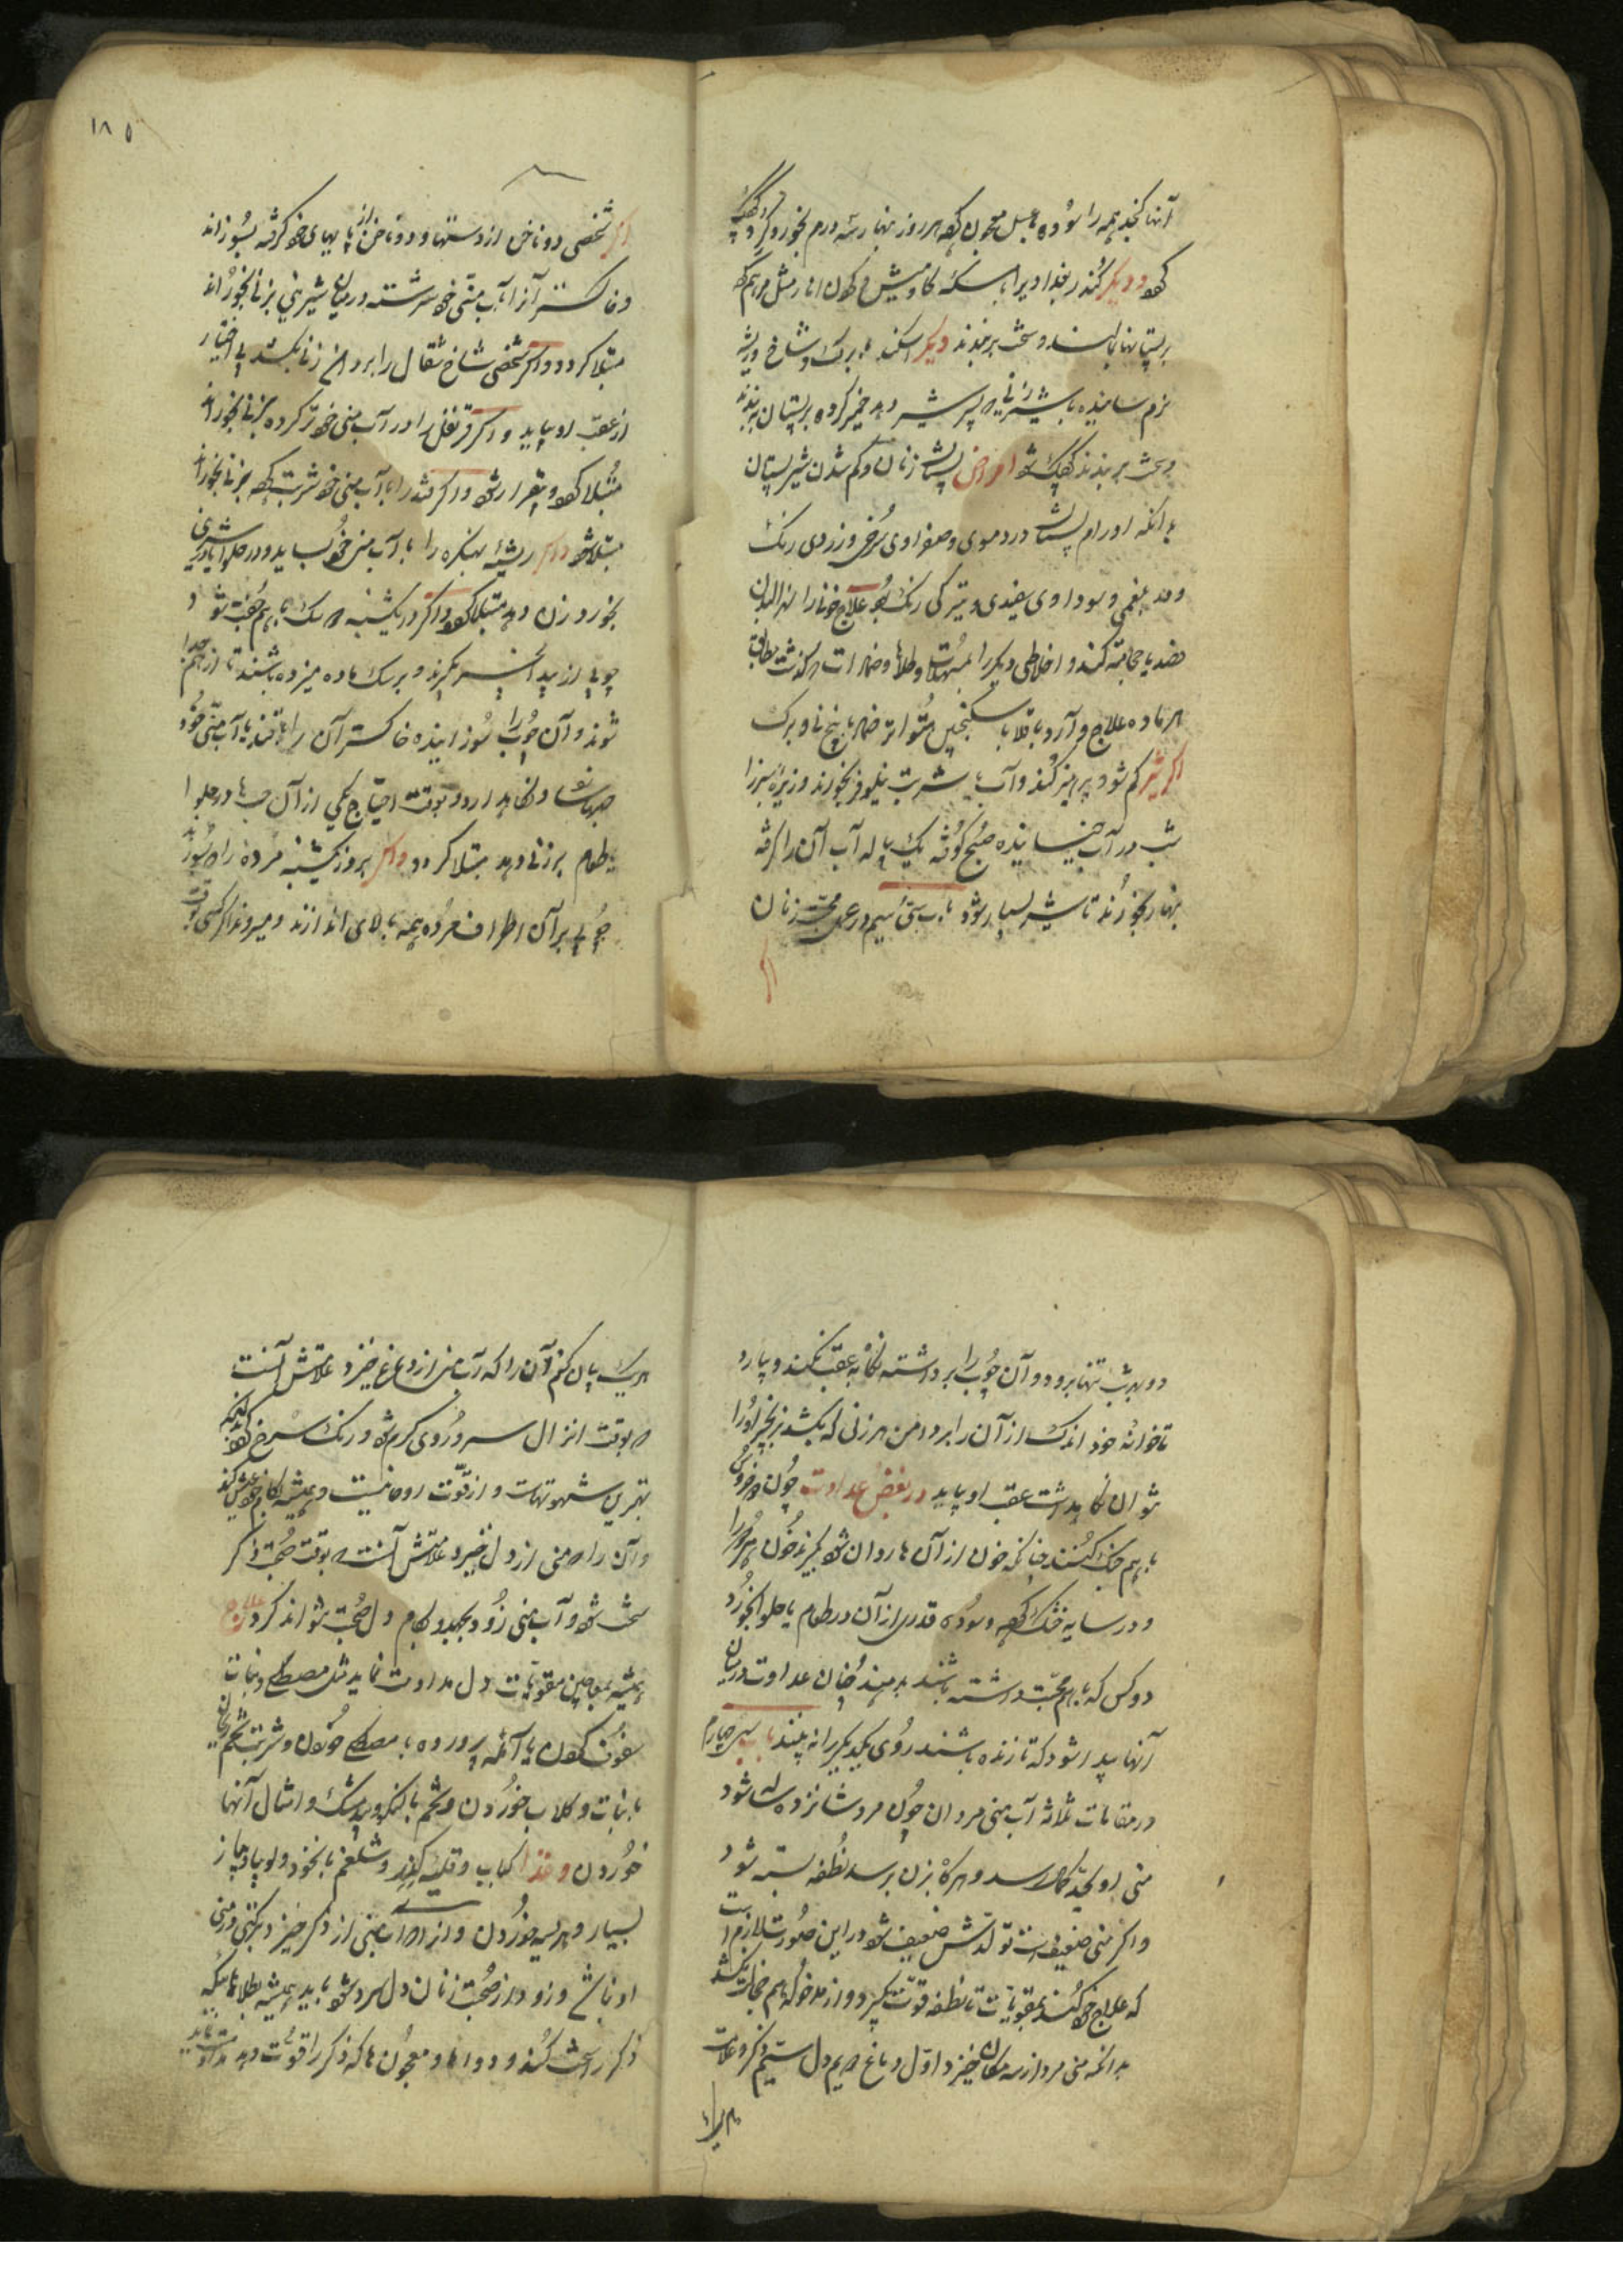 آنها کنجد همه را سوده بعسل معجون کهه هر روز نهار سه درم بخورد
دیکر کندر بغدادیرا با مسکه کاومیش مثل مرهم
بر پستانها بمالند و سخت بربندند دیکر اسکند با برک و شاخ و ریشه
نرم سانیده با شیر زنی که پسر شیر دهد خمیر کرده بر پستان بندند
و سخت بربندند امراض پستان زنان و کم شدن شیر پستان
بدانکه اورام پستان در دموی و صفراوی سرخی و زردی رنک
و در بلغمی و سوداوی سفیدی و تیرکی رنک بود علاج خونرا
فصد یا حجامت کنند و اخلاطی دیکر را بمسهلات و طلاها و ضمادات
هر ماده علاج و آرد باقلا با سکنجبین
اکر شیر کم شود پرهیز کند و آب با شربت نیلوفر بخورند و زیره سبز را
شب در آب خیسانیده صبح کوفته یک پیاله آب آن را کرفته
نهار بخورند تا شیر بسیار شود باب سی سیم در عمل محبت زنان
اکر
۱۸۵
اکر شخصی دو ناخن از دستها و دو ناخن از پایهای خود کرفته بسوزاند
و خاکستر آنرا بآب منی خود سرشته در میان شیرینی بزنان بخوراند
مبتلا کردد و اکر شخصی شاخ شغال را بر دامن زنی بکشد بی اختیار
از عقب او بیاید و اکر قرنفل را در آب منی خود تر کرده بزنی بخوراند
مبتلا کهه و بیقرار شود و اکر قند را با آب منی خود شربت کهه بزنی بخوراند
مبتلا شود و اکر ریشه بهنکره را با آب منی خود بساید و در حلوا یا در شیرینی
بخورد زن دهد مبتلا کهه و اکر در یکشنبه که سک با هم جفت شود
چوبی از بید انجیر بکیرند و بر سک ماده میزده باشند تا از هم جدا
شوند و آن چوب را سوزانیده خاکستر آن را با قند با آب منی خود
حبها نماید و نکاهدارد و بوقت احتیاج یکی از آن حبها در حلوا
یا طعام بزنی دهد مبتلا کردد و اکر بروز یکشنبه مرده را که بسوزند
چوبی بر آن اطراف مرده همه بالای اندازند و میروند اکر کسی وقت
دوپهر شب تنها برود و آن چوب را برداشته نکاه به عقب نکند و بیارد
تا خوانه خود اندک از آن را بر دامن هر زنی که بکشد بزنجیر او را
نتوان نکاهداشت عقب او بیاید در بغض عداوت چون دو خروس
با هم جنک کنند چنانکه خون از آن ها روان شود بکیرند خون هر دو را
و در سایه خشک کهه و سوده قدری از آن در طعام یا حلوا بخورد
دو کس که با هم محبت داشته باشند بدهند چنان عداوت در میان
آنها پیدا شود که تا زنده باشند روی یکدیکر را نه بینند باب سی چهارم
در مقامات ثلاثه آب منی مردان چون مرد شانزده ساله شود
منی او بحد کمال رسد و هرکاه بزن برسد نطفه بسته شود
و اکر منی ضعیفست تولدش ضعیف شود در این صورت لازم است
که علاج خود کنند بمقویات تا نطفه قوت بکیرد
بدانکه منی مرد از سه مکان خیزد اول دماغ دویم دل سیم ذکر و علامت
هر یک را
هر یک بیان کنم آن را که آب منی از دماغ خیزد علامتش آنست
که بوقت انزال سر و روی کرم شود و رنک سرخ
بهترین شهوتهاست و از قوت روحانیست و همیشه
و آن را که منی از دل خیزد علامتش آنست که بوقت صحبت ذکر
سخت شود و آب منی زود بجهد و بکام دل صحبت نتواند کرد علاج
همیشه بمعاجین مقویات دل مداومت نماید مثل مصطکی و نبات
سفوف کهه یا آمله پرورده با مصطکی خوردن و شربت تخم ریحان
با نبات و کلاب خوردن و تخم بالنکو و بیدمشک و امثال آنها
خوردن و غذا کباب و قلیه و شلغم با نخود و لوبیا و پیاز
بسیار و هریسه خوردن و آنرا که آب منی از ذکر خیزد
او باشد و زود از صحبت زنان دل سرد شود باید همیشه بطلاها که
ذکر را سخت کند و دواها و معجون ها که ذکر را قوت دهد